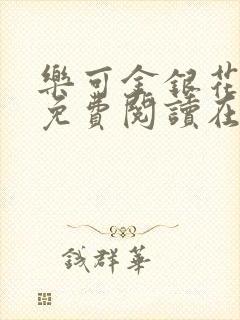 樂可金銀花
免費閱讀在
錢群華